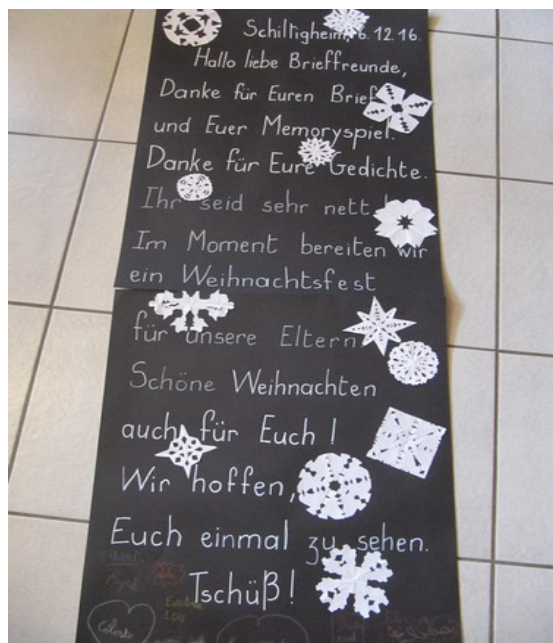 Schiltigheim, 6.12.16.
Hallo liebe Brieffreunde,
Danke für Euren Brief
und Euer Memoryspiel.
Danke für Eure Gedichte.
Ihr seid sehr nett!
Im Moment bereiten wir
ein Weihnachtsfest
für unsere Eltern.
Schöne Weihnachten
auch für Euch!
Wir hoffen,
Euch einmal zu sehen.
Tschüß!
Celeste